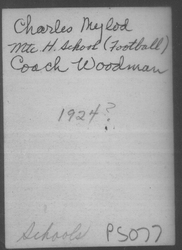 Charles Mylod
Mtc H. School (Football)
Coach Woodman
1924?
Schools PS077